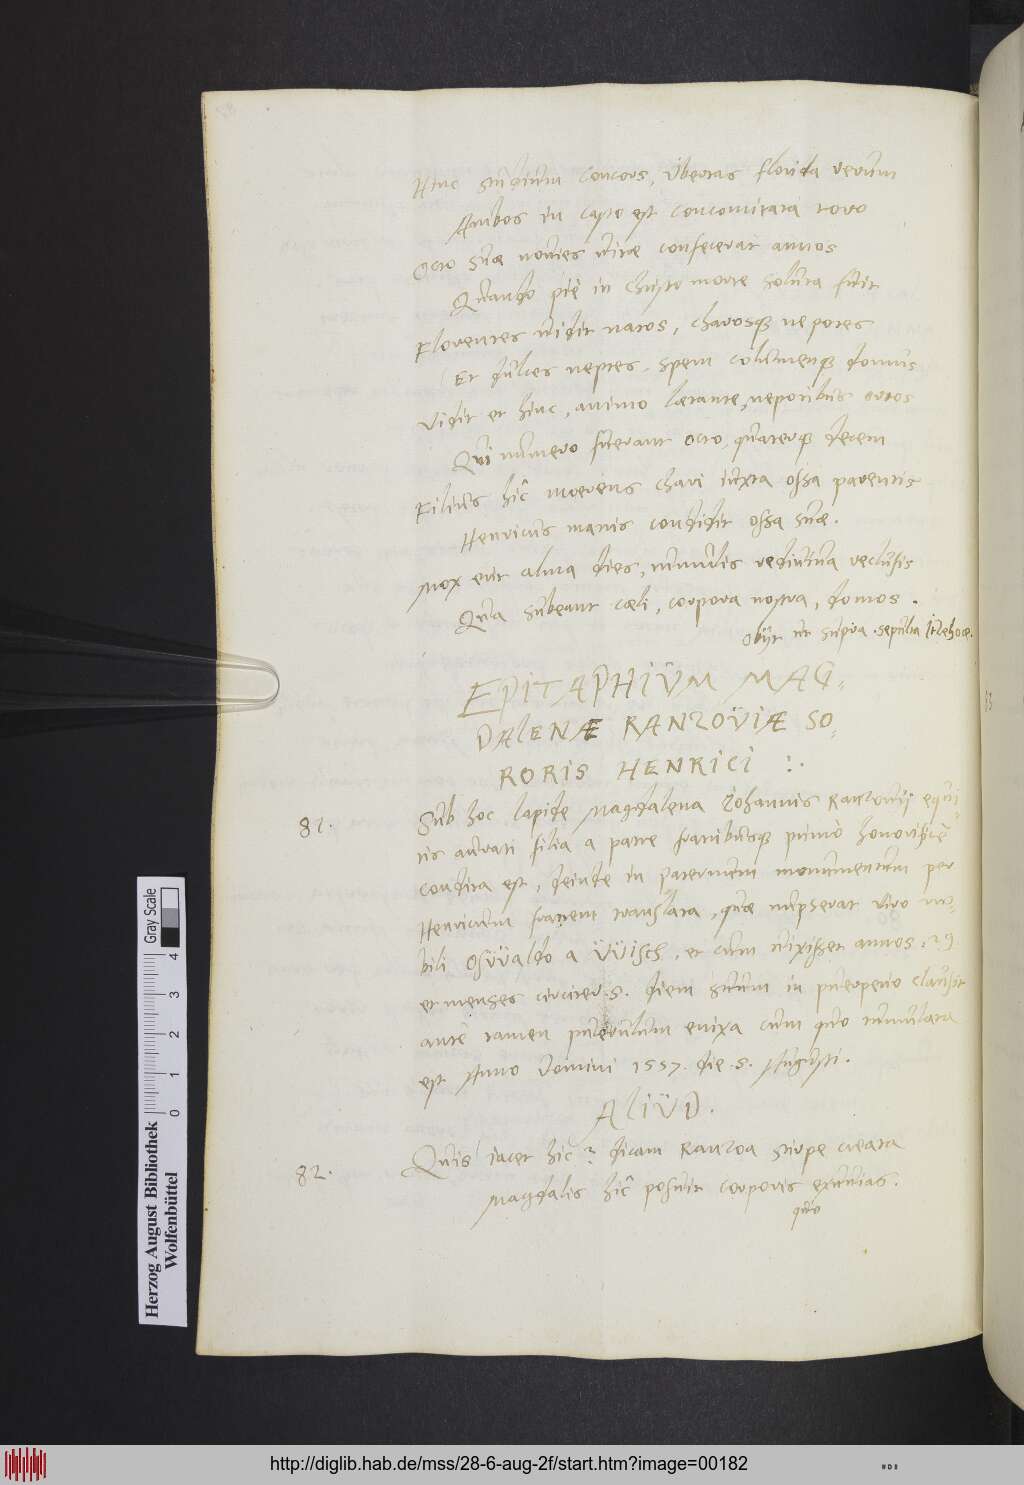 Hinc studium concors, ubertas florida rerum
Ambos in casto est concomitata toro
Octo suae novies vitae confecerat annos
Quando pie in Christo morte soluta fuit
Florentes vidit natos, charosq₃ nepotes
Et dulces neptes, spem columenq₃ domus
Vidit et hinc, animo laetante, nepotibus ortos
Qui numero fuerant octo, quaterq₃ decem
Filius hîc moerens chari iuxta ossa parentis
Henricus manis condidit ossa suae.
Mox erit alma dies, tumulis rediviva reclusis
Qua subeant caeli, corpora nostra, domos.
Obijt ut supra. sepulta Itzehoae.
EPITAPHIÜM MAG-
DALENÆ RANZOÜIÆ SO-
RORIS HENRICI :.
81. Sub hoc lapide Magdalena Iohannis Ranzouij equi-
tis aurati filia a patre fratribusque primò honorificè
condita est, deinde in paternum monumentum per
Henricum fratrem translata, quae nupserat viro no-
bili Osüüaldo a Üüisch, et cum vixisset annos .29
et menses circiter .5. diem suum in puerperio clausit
ante tamen puerulum enixa cum quo tumulata
est Anno Domini 1557. die .5. Augusti.
ALIÜD.
82. Quis iacet hic? dicam Ranzoa stirpe creata
Magdalis hîc posuit corporis exuvias.
quo
Herzog August Bibliothek
Wolfenbüttel
0 1 2 3 4
Gray Scale
http://diglib.hab.de/mss/28-6-aug-2f/start.htm?image=00182